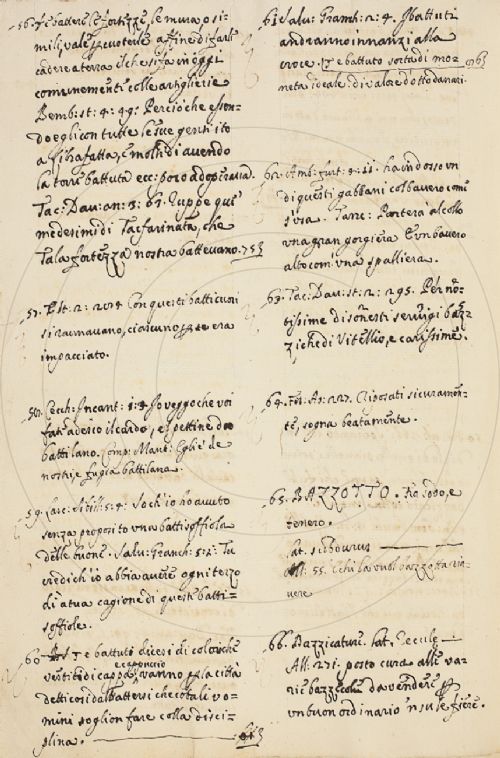 56. Te battere le fortezze, le mura, o si=
mili, vale percuoterle affine di farle
cadere a terra il che si fa in oggi
comunemente colle artiglierie
Bemb: st: 4: 49: Percioche essen=
do egli con tutte le sue genti ito
a Fibrafatta, e molti dì avendo
la torre battuta ecc:
Tac: Dav: an: 3: 67.
medesimi di Tacfarinata, che
Tala fortezza nostra battevano.
57. 2: 204 Con questi batticuori
si armavano, ciascuno era
impacciato.
58. Cecch: Incant: 1: 3 Io veggo che voi
fat' adesso il cardo, e'l pettine da
battilano. Comp: Mant: Egli è de
nostri e fugia battilana.
59. Lasc: Sibill: 5: 9: So ch'io ho avuto
senza proposito una battisoffiola
delle buone. Salv: Granch: 5: 2: Tu
credi ch'io abbia avere ogni terzo
dì a tua cagione di queste batti=
soffiole.
60 e battuti dicesi di coloro che
cappuccio
vestiti di cappa, vanno per la città
detti così dal battersi che cotali uo=
mini soglion fare colla disci=
plina.
61. Salv: Granch: 2: 4. I battuti
andranno innanzi alla
croce. e battuto sorta di mo=
neta ideale di valore d'otto danari.
62. Amb: furt: 4: 11. ha indosso un
di questi gabbani col bavero come
s'usa. Porterà al collo
una gran gorgiera e un bavero
alto com' una spalliera.
63. Tac: Dav: st: 2: 295. Per no=
tissime disonesti servigi baz=
ziche di Vitellio, e carissime.
64. 227. Riposati sicuramen=
te, sogna beatamente.
65. BAZZOTTO. fra sodo, e
tenero.
lat.
All: 55. Chi la vuol bazzotta
66. Bazzicature. lat.
All: 271. posto cura alle va=
rie bazzecole da vendere
un buon ordinario n su le fiere.